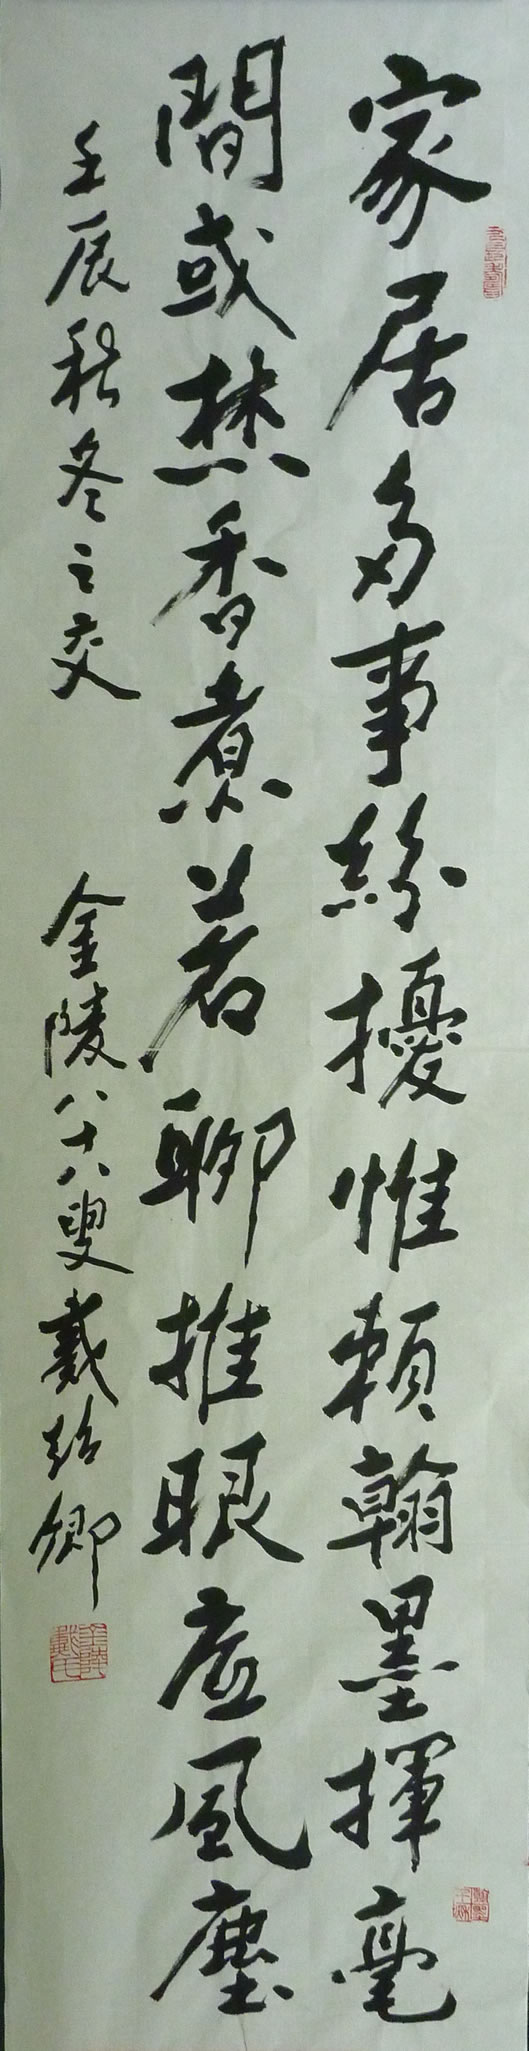 家居多事紛擾惟賴翰墨揮毫
間或焚香煮茗聊推眼底風塵
壬辰秋冬之交
金陵八十八叟戴紹卿